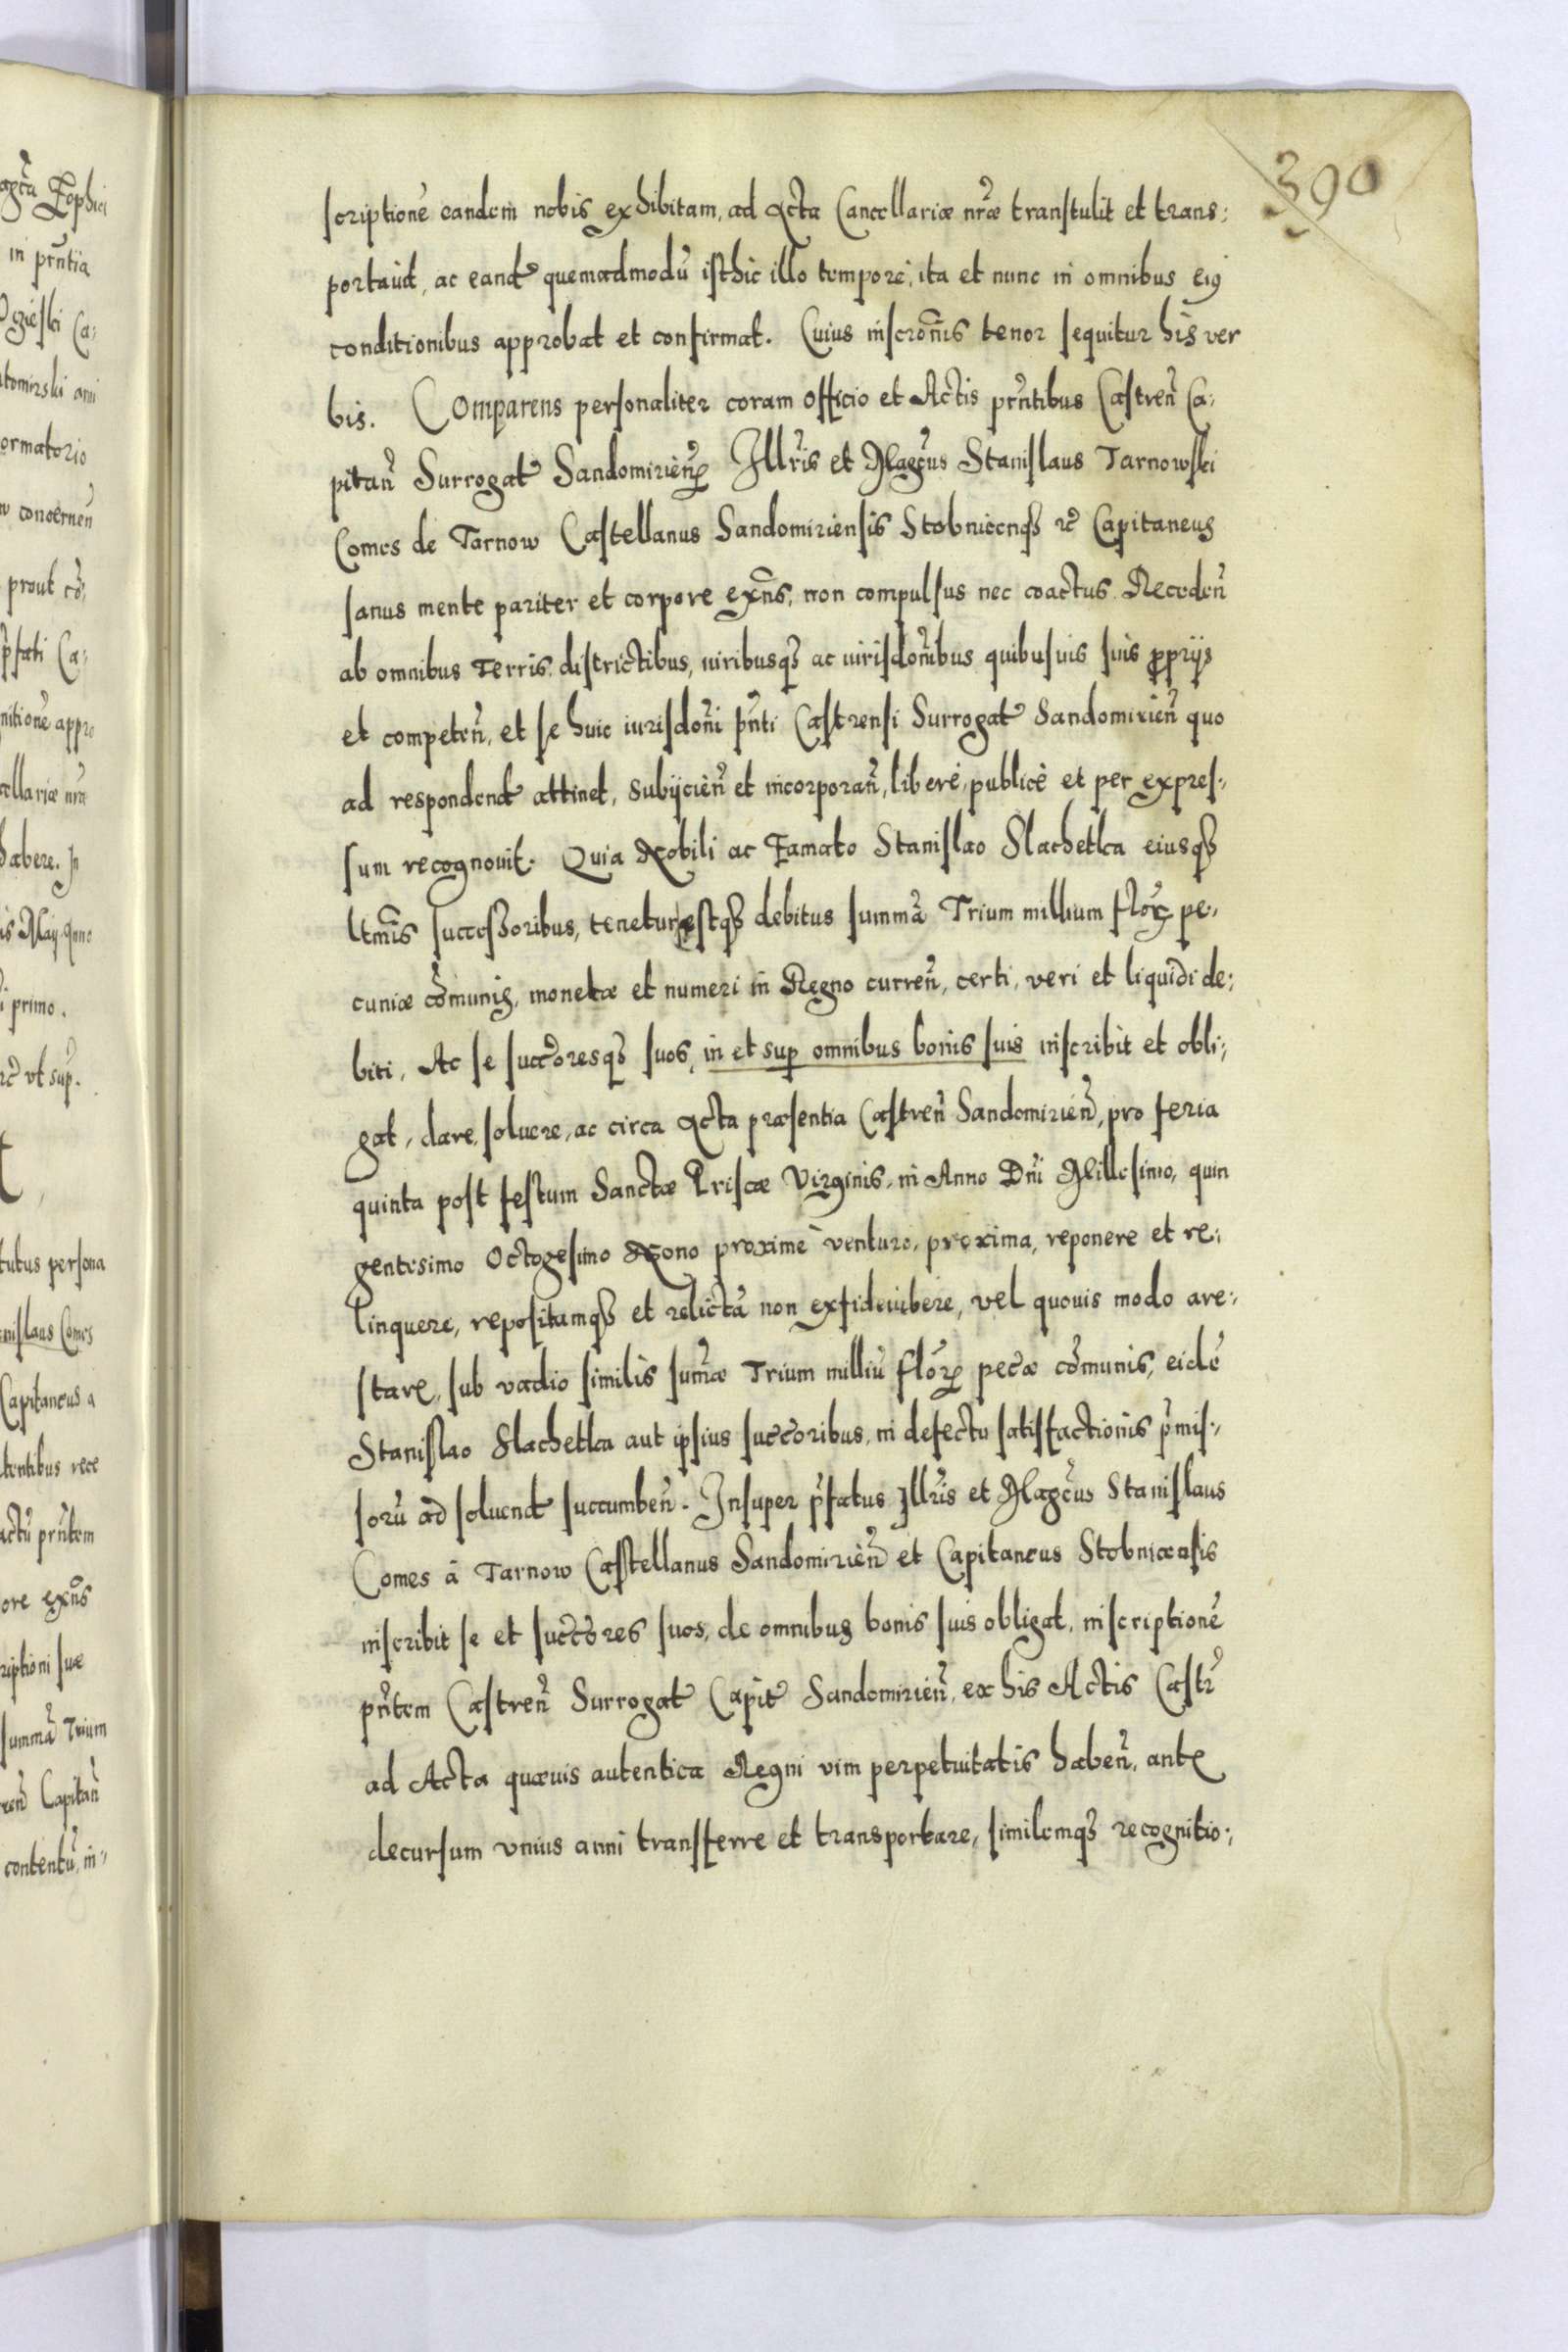 390
scriptionẽ eandem nobis exhibitam, ad Acta Cancellariæ nrǣ transtulit et trans:
portauit, ac eand quemadmodũ isthic illo tempore, ita et nunc in omnibus eiꝰ
conditionibus approbat et confirmat. Cuius inscronĩs tenor sequitur his ver
bis. Comparens personaliter coram officio et Actis prñtibus Castreñ Ca:
pitañ Surrogat Sandomirieñ Illris et Magcus Stanislaus Tarnowski
Comes de Tarnow Castellanus Sandomiriensis Stobnicenqȝ ꝛc Capitaneus
sanus mente pariter et corpore exñs, non compulsus nec coactus. Recedeñ
ab omnibus Terris, districtibus, iuribusqȝ ac iurisdoñibus quibusuis suis ꝓprijs
et competeñ, et se huic iurisdoñi pñti Castrensi Surrogat Sandomirieñ quo
ad respondend attinet, subijcieñ et incorporañ, liberè, publicè et per expres:
sum recognouit. Quia Nobili ac Famato Stanislao Slachetka eiusqȝ
ltmĩs successoribus, tenetur estqȝ debitus summã Trium millium florꝝ pe:
cuniæ cõmunis, monetæ et numeri in Regno curreñ, certi, veri et liquidi de:
biti, Ac se succoresqȝ suos, in et sup omnibus bonis suis inscribit et obli:
gat, dare, soluere, ac circa Acta præsentia Castreñ Sandomirieñ, pro feria
quinta post festum Sanctæ Priscæ Virginis, in Anno Dñi Millesimo, quin
gentesimo Octogesimo Nono proximè venturo, proxima, reponere et re:
linquere, repositamqȝ et relictã non exfideiubere, vel quouis modo are:
stare, sub vadio similis sum̃æ Trium milliũ florꝝ pecæ cõmunis, eidẽ
Stanislao Slachetka aut ipsius succoribus, in defectu satisfactionis pr̃mis:
sorũ ad soluend succumbeñ. Insuper pr̃fatus Illris et Magcus Stanislaus
Comes à Tarnow Castellanus Sandomirieñ et Capitaneus Stobnicensis
inscribit se et succores suos, de omnibus bonis suis obligat, inscriptionẽ
pñtem Castreñ Surrogat Capit Sandomirieñ, ex his Actis Castr
ad Acta quæuis autentica Regni vim perpetuitatis habeñ, ante
decursum vnius anni transferre et transportare, similemqȝ recognitio: